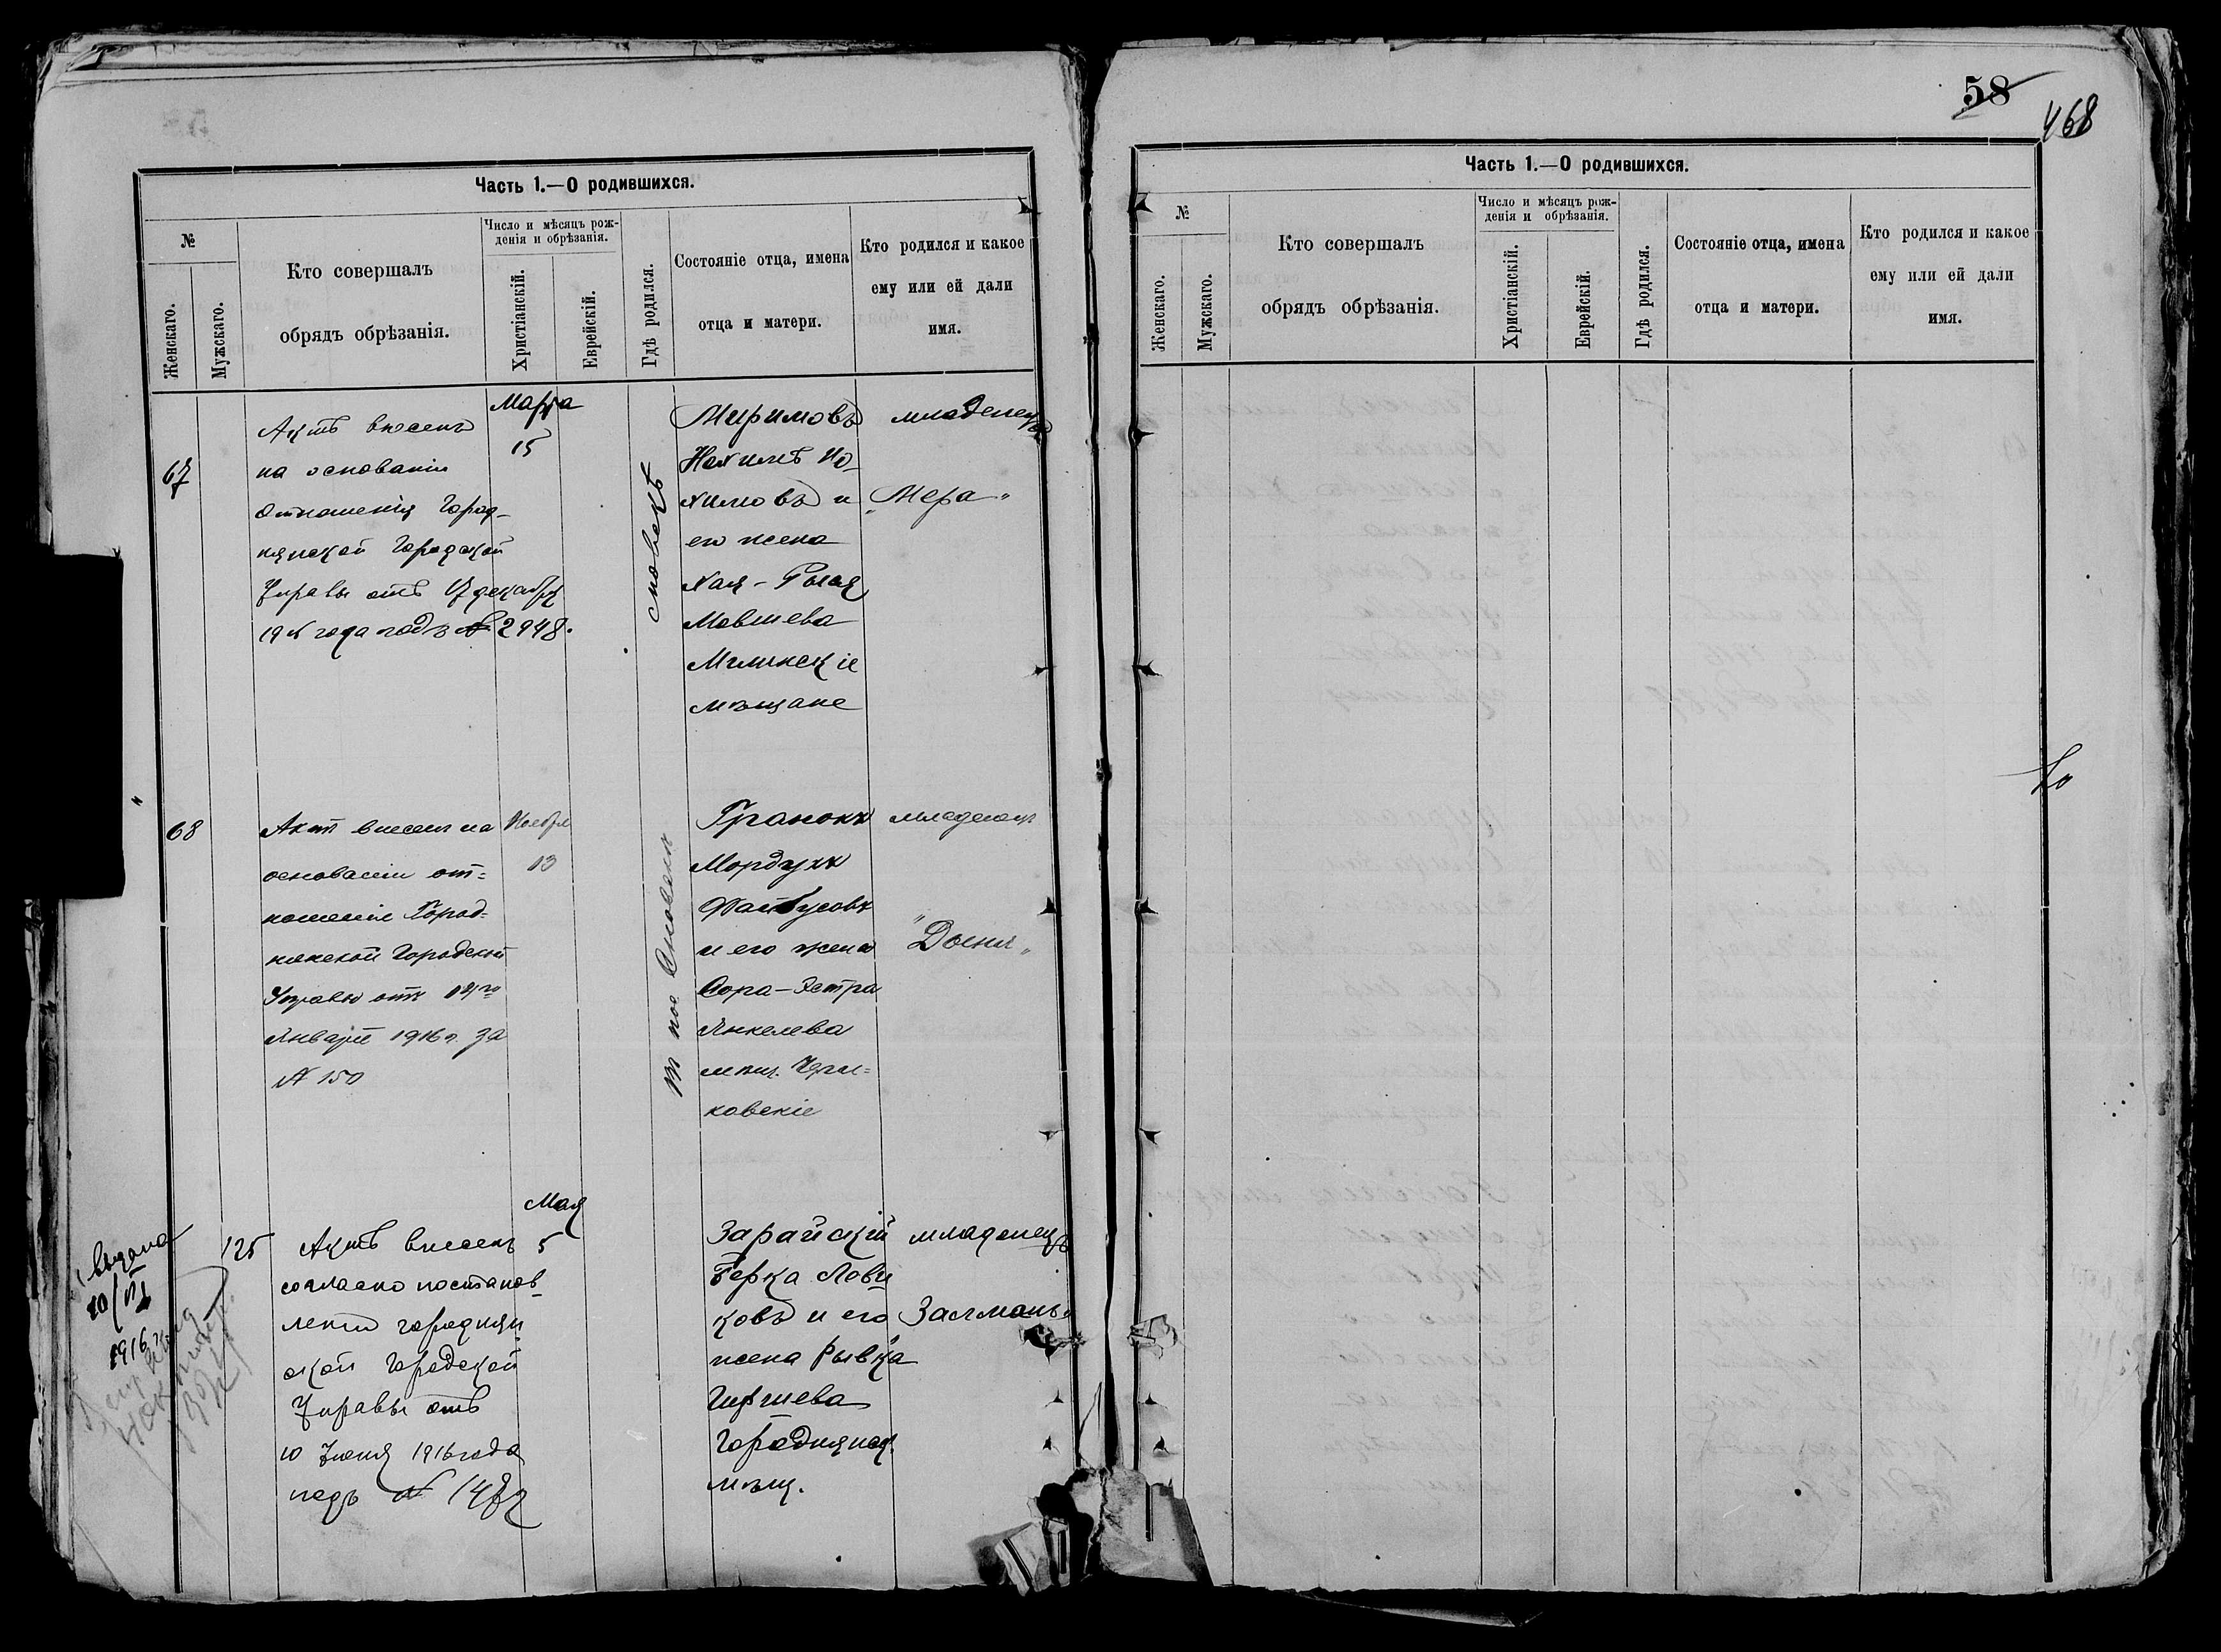 58
468
Часть 1.—О родившихся.
№
Женскаго.
Мужскаго.
Кто совершалъ
обрядъ обрѣзанія.
Число и мѣсяцъ рож-
денія и обрѣзанія.
Христіанскій.
Еврейскій.
Гдѣ родился.
Состояніе отца, имена
отца и матери.
Кто родился и какое
ему или ей дали
имя.
67
Актъ внесенъ
на основаніи
отношенія Город-
нянской Городской
Управы отъ декабря
года подъ № 2948.
Марта
15
сновскъ
Миримовъ
Нохимъ Но-
химовъ и
его жена
Хая-
Мовшева
Мглинскіе
мѣщане
младенецъ
„Мера"
68
Актъ внесенъ на
основаніи от=
ношенія Город=
нянской Городской
Управы отъ
Января 1916 г. за
№ 150
Ноября
13
м пос Сновскъ
Грановъ
Мордухъ
Файвусовъ
и его жена
Сора-Эстра
Янкелева
мѣщ.
ковскіе
младенецъ
"Доня"
125
Актъ внесенъ
согласно постанов-
ленія городнян-
ской Городской
Управы отъ
10 Іюня 1916 года
подъ №
Мая
5
Зарайскій
Берка Лови-
ковъ и его
жена Рывка
Гиршева
Городнянск.
мѣщ.
младенецъ
Залманъ"
выдана
10/VI
1916
Часть 1.—О родившихся.
№
Женскаго.
Мужскаго.
Кто совершалъ
обрядъ обрѣзанія.
Число и мѣсяцъ рож-
денія и обрѣзанія.
Христіанскій.
Еврейскій.
Гдѣ родился.
Состояніе отца, имена
отца и матери.
Кто родился и какое
ему или ей дали
имя.